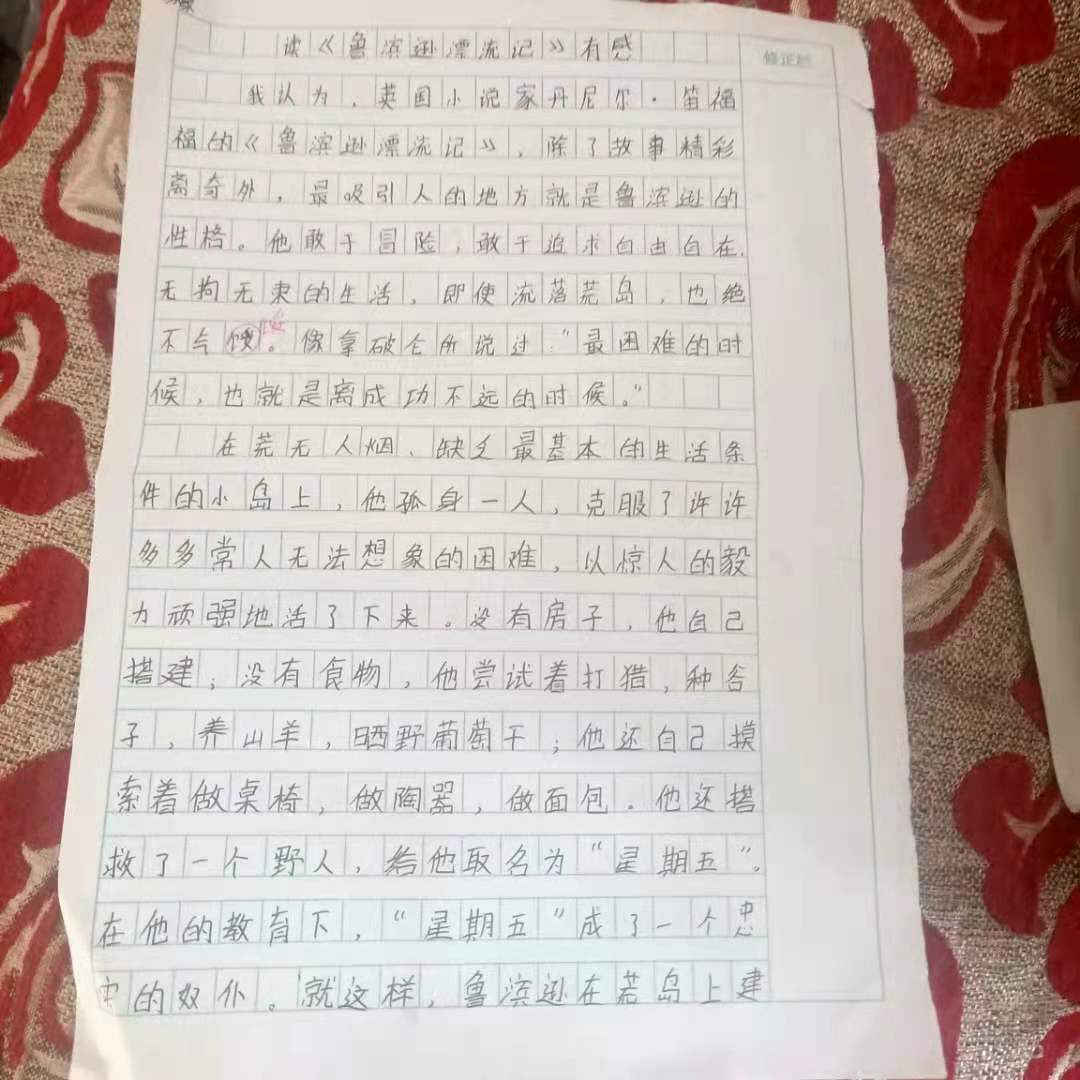 读《鲁滨逊漂流记》有感
修正栏
我认为，英国小说家丹尼尔·笛福
福的《鲁滨逊漂流记》，除了故事精彩
离奇外，最吸引人的地方就是鲁滨逊的
性格。他敢于冒险，敢于追求自由自在、
无拘无束的生活，即使流落荒岛，也绝
不气馁。像拿破仑所说过："最困难的时
候，也就是离成功不远的时候。"
在荒无人烟、缺乏最基本的生活条
件的小岛上，他孤身一人，克服了许许
多多常人无法想象的困难，以惊人的毅
力顽强地活了下来。没有房子，他自己
搭建；没有食物，他尝试着打猎，种谷
子，养山羊，晒野葡萄干；他还自己摸
索着做桌椅，做陶器，做面包。他还搭
救了一个野人，给他取名为"星期五"。
在他的教育下，"星期五"成了一个忠
实的奴仆。就这样，鲁滨逊在荒岛上建